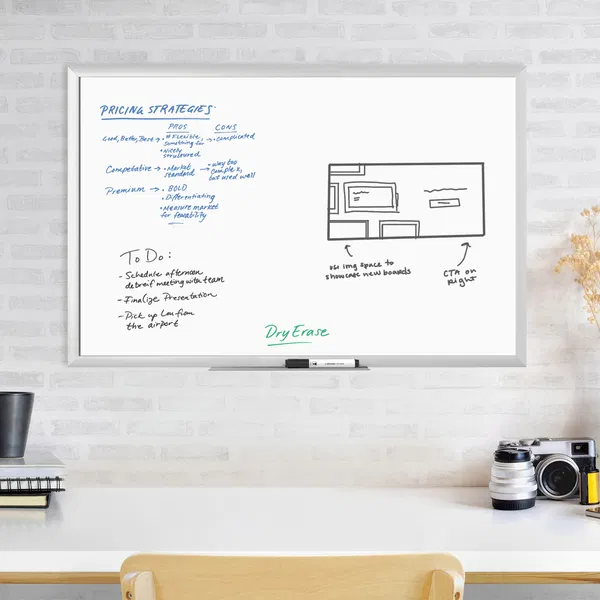 PRICING STRATEGIES
PROS CONS
Good, Better, Best → • Flexible, → • Complicated
something for
• Nicely
structured
Competative → • Market → • Way too
standard complex,
but used well
Premium → • BOLD
• Differentiating
• Measure market
for feasibility
To Do:
- Schedule afternoon
debreif meeting with team
- Finalize Presentation
- Pick up from
the airport
img space to
showcase new boards
CTA on
Right
Dry Erase